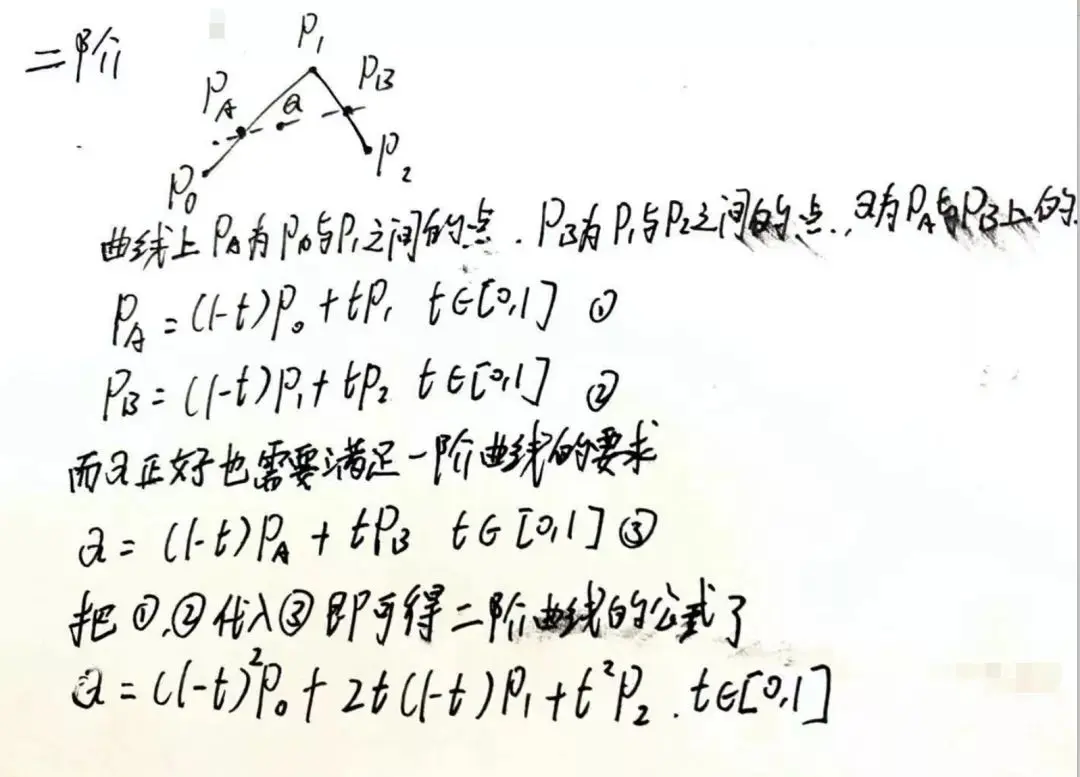 二阶
P₁
P_A
a
P_B
P₀
P₂
曲线上P_A为P₀与P₁之间的点.P_B为P₁与P₂之间的点.,a为P_A与P_B上的
P_A=(1-t)P₀+tP₁ t∈[0,1] ①
P_B=(1-t)P₁+tP₂ t∈[0,1] ②
而a正好也需要满足一阶曲线的要求
a=(1-t)P_A+tP_B t∈[0,1]③
把①,②代入③即可得二阶曲线的公式了
a=(1-t)²P₀+2t(1-t)P₁+t²P₂.t∈[0,1]